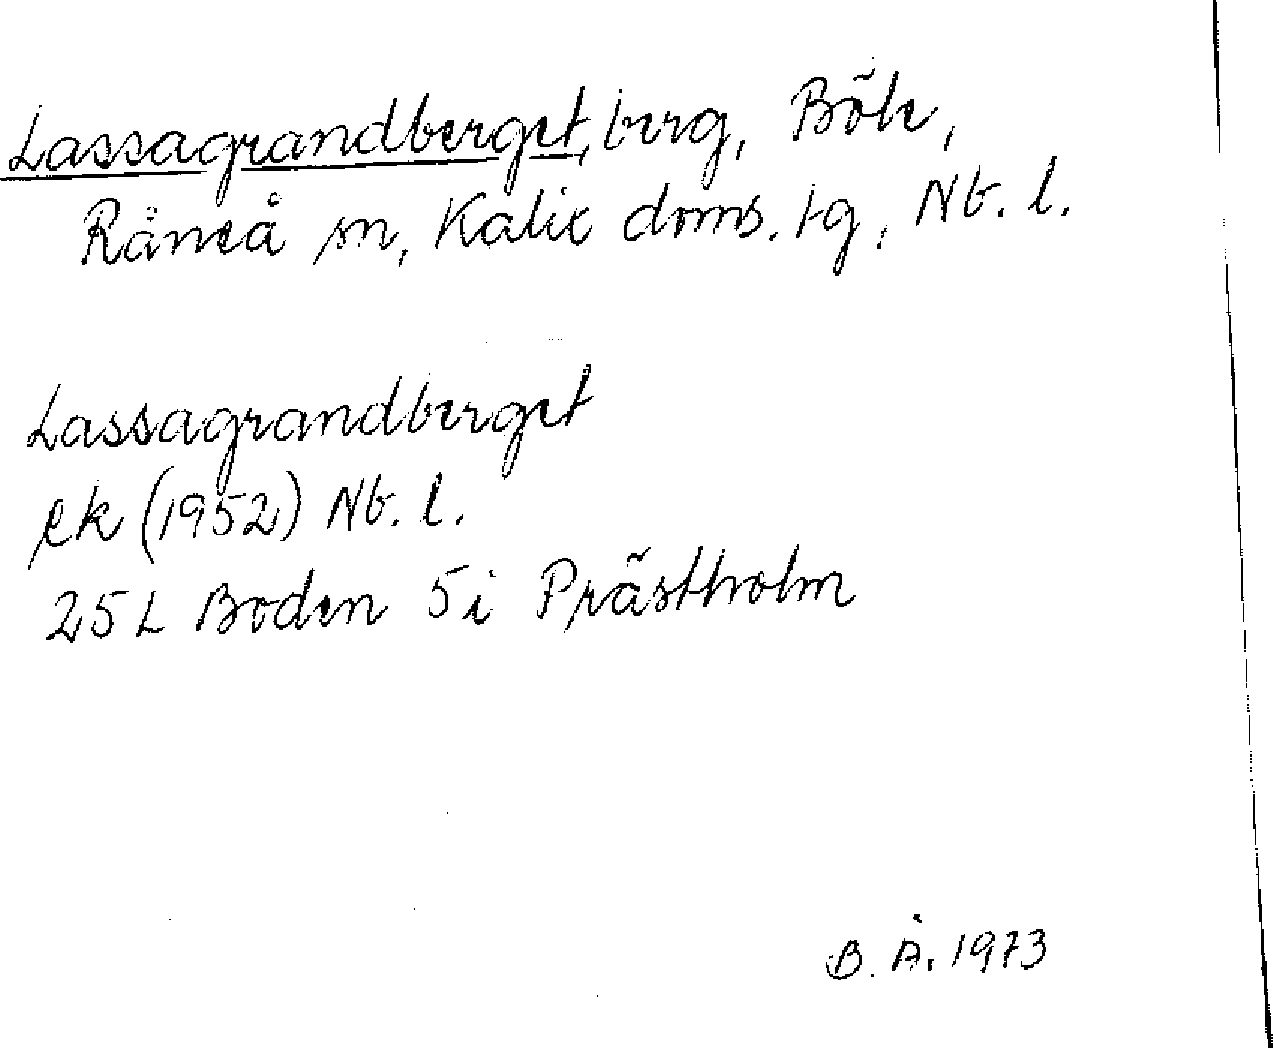 Lassagrandberget, berg, Böle,
Råneå sn, Kalix doms. tg, Nb. l.
Lassagrandberget
ek (1952) Nb. l.
25L Boden 5i Prästholm
B. Å. 1973